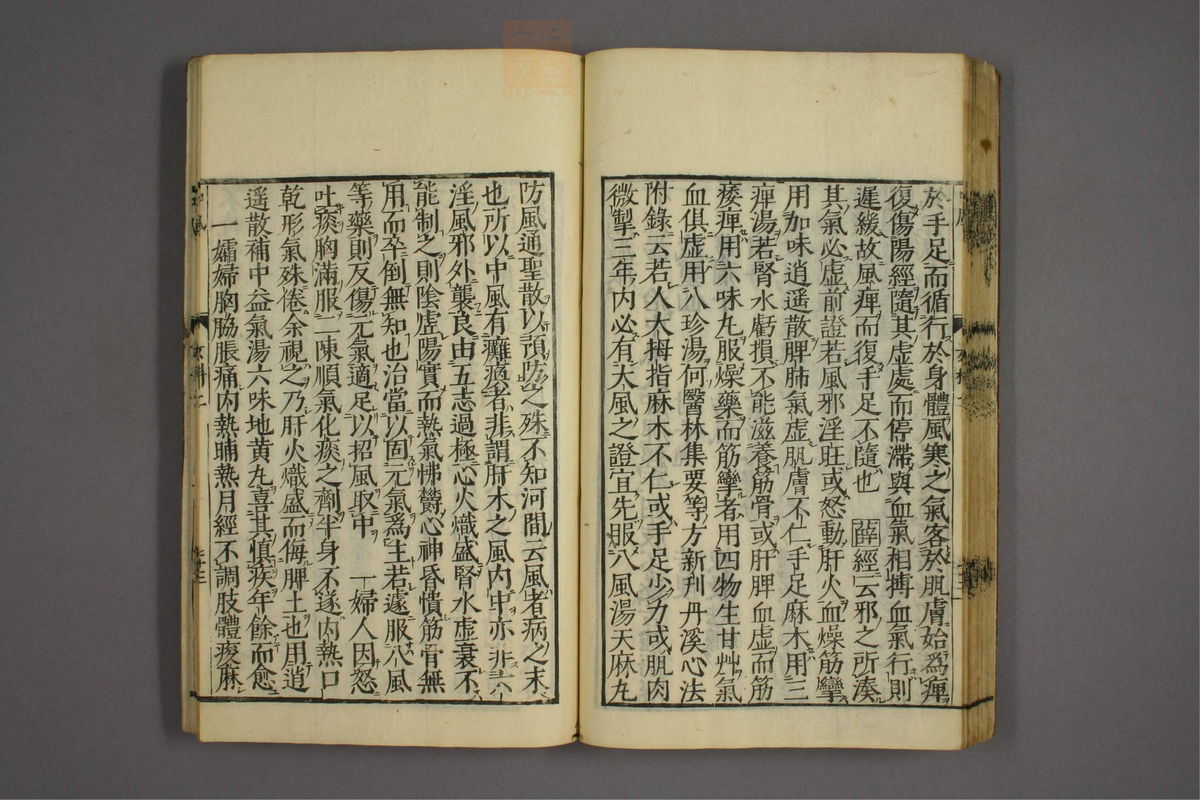 於手足而循行於身體風寒之氣客於肌膚始爲痺
復傷陽經隨其虛處而停滯與血氣相搏血氣行則
遲緩故風痺而復手足不隨也 薛經云邪之所湊
其氣必虛前證若風邪淫旺或怒動肝火血燥筋攣
用加味逍遥散脾肺氣虛肌膚不仁手足麻木用三
痺湯若腎水虧損不能滋養筋骨或肝脾血虛而筋
痿痺用六味丸服燥藥而筋攣者用四物生甘艸氣
血俱虛用八珍湯何醫林集要等方新刋丹溪心法
附錄云若人大拇指麻木不仁或手足少力或肌肉
微掣三年內必有大風之證宜先服八風湯天麻丸
防風通聖散以預防之殊不知河間云風者病之末
也所以中風有癱瘓者非謂肝木之風內中亦非六
淫風邪外襲良由五志過極心火熾盛腎水虛衰不
能制之則陰虛陽實而熱氣怫鬱心神昏憒筋骨無
用而卒倒無知也治當以固元氣爲主若遽服八風
等藥則反傷元氣適足以招風取中 一婦人因怒
吐痰胸滿服二陳順氣化痰之劑半身不遂內熱口
乾形氣殊倦余視之乃肝火熾盛而侮脾土也用逍
遥散補中益氣湯六味地黄丸喜其愼疾年餘而愈
一孀婦胸脇脹痛內熱晡熱月經不調肢體痠麻